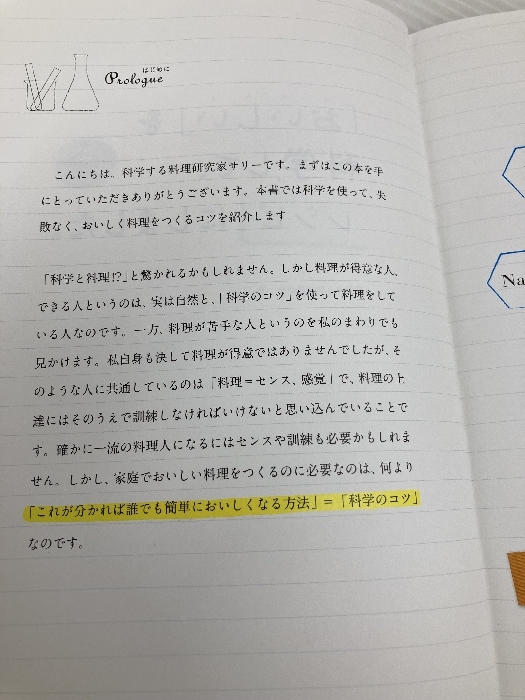 はじめに
Prologue
こんにちは。科学する料理研究家サリーです。まずはこの本を手
にとっていただきありがとうございます。本書では科学を使って、失
敗なく、おいしく料理をつくるコツを紹介します
「科学と料理!?」と驚かれるかもしれません。しかし料理が得意な人、
できる人というのは、実は自然と、「科学のコツ」を使って料理をして
いる人なのです。一方、料理が苦手な人というのを私のまわりでも
見かけます。私自身も決して料理が得意ではありませんでしたが、そ
のような人に共通しているのは「料理＝センス、感覚」で、料理の上
達にはそのうえで訓練しなければいけないと思い込んでいることで
す。確かに一流の料理人になるにはセンスや訓練も必要かもしれま
せん。しかし、家庭でおいしい料理をつくるのに必要なのは、何より
「これが分かれば誰でも簡単においしくなる方法」＝「科学のコツ」
なのです。
Na